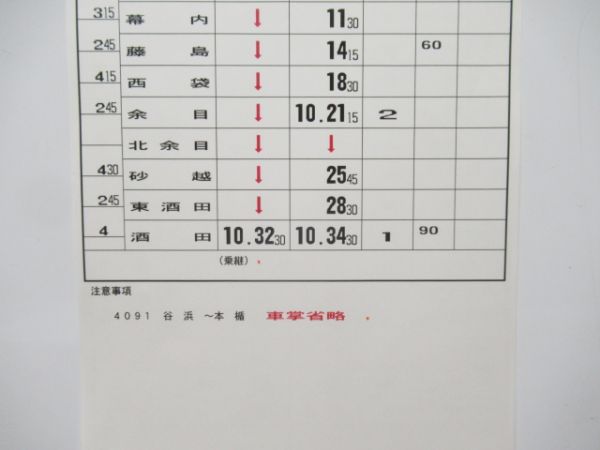 3 15 幕内 ↓ 11 30
2 45 藤島 ↓ 14 15 60
4 15 西袋 ↓ 18 30
2 45 余目 ↓ 10.21 15 2
北余目 ↓ ↓
4 30 砂越 ↓ 25 45
2 45 東酒田 ↓ 28 30
4 酒田 10.32 30 10.34 30 1 90
(乗継)
注意事項
4091 谷浜 ~本楯 車掌省略